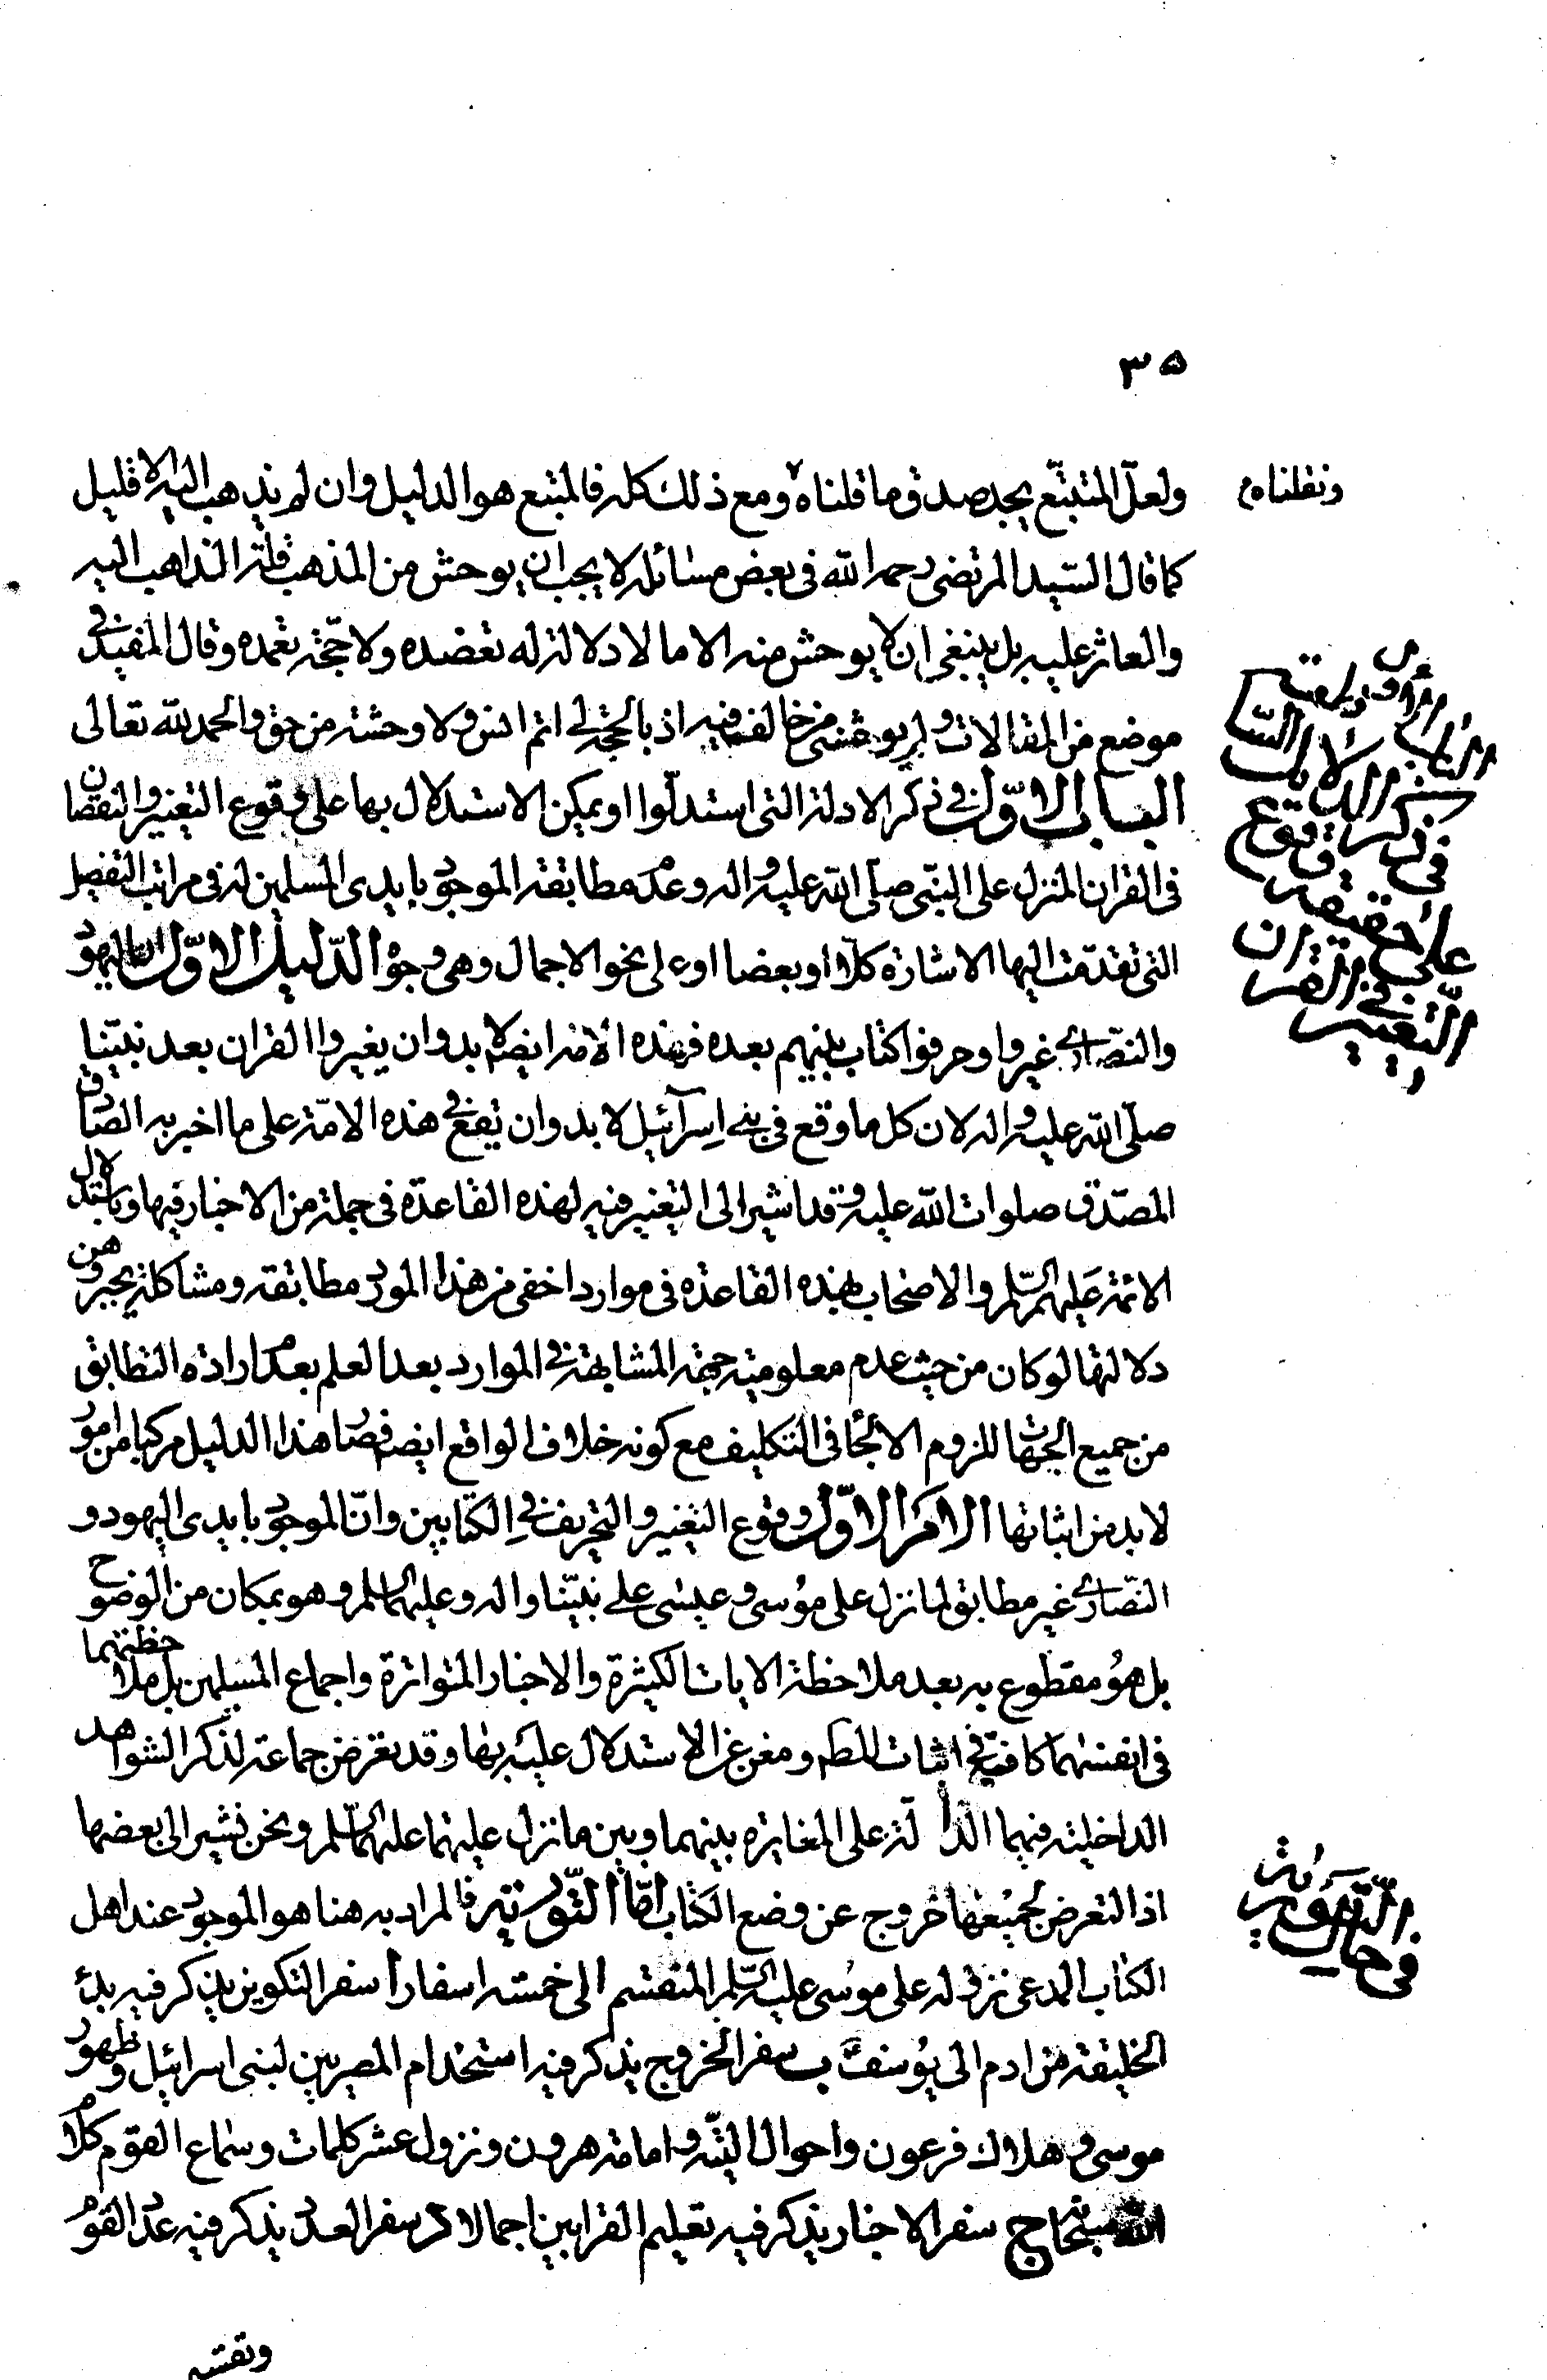 ٣٥
ولعلّ المتتبّع يجد صدق ما قلناه ومع ذلك كله فالمتبع هو الدليل وان لم يذهب اليه الا قليل
ونقلناه
كما قال السيد المرتضى رحمه الله فى بعض مسائله لا يجب ان يوحش من المذهب قلة الذاهب اليه
والعاثر عليه بل ينبغى ان لا يوحش منه الا ما لا دلالة له تعضده ولا حجّة تعمده وقال المفيد فى
موضع من المقالات ولم يوحشنى من خالف فيه اذ بالحجة لى اتم انس ولا وحشة من حق والحمد لله تعالى
الباب الاوّل فى ذكر الادلة التى استدلّوا او يمكن الاستدلال بها على وقوع التغيير والنقصان
فى القران المنزل على النبّى صلّى الله عليه واله وعدم مطابقة الموجود بايدى المسلمين له فى مراتب التفصيل
التى تقدمت اليها الاشارة كلّا او بعضا او على نحو الاجمال وهى وجوه الدّليل الاوّل ان اليهود
والنّصارى غيروا وحرفوا كتاب نبيهم بعده فهذه الامة ايضا لا بد وان يغيروا القران بعد نبيّنا
صلّى الله عليه واله لان كل ما وقع فى بنى اسرآئيل لا بد وان يقع فى هذه الامّة على ما اخبر به الصادق
المصدّق صلوات الله عليه وقد اشير الى التغيير فيه لهذه القاعدة فى جملة من الاخبار فيها وباستدلال
الائمة عليهم السّلم والاصحاب بهذه القاعدة فى موارد اخفى من هذا المورد مطابقة ومشاكلة يجبر وهن
دلالتها لو كان من حيث عدم معلومية جهة المشابهة فى الموارد بعد العلم بعدم ارادة التطابق
من جميع الجهات للزوم الالجاء فى التكليف مع كونه خلاف الواقع ايضا فصار هذا الدليل مركبا من امور
لا بد من اثباتها الامر الاوّل وقوع التغيير والتحريف فى الكتابين وانّ الموجود بايدى اليهود و
النّصارى غير مطابق لما نزل على موسى وعيسى على نبيّنا واله وعليهما السلم وهو بمكان من الوضوح
بل هو مقطوع به بعد ملاحظة الايات الكثيرة والاخبار المتواترة واجماع المسلمين بل ملاحظتهما
فى انفسهما كافية فى اثبات المط ومغن عن الاستدلال عليه بها وقد تعرض جماعة لذكر الشواهد
الداخلية فيهما الدالّة على المغايرة بينهما وبين ما نزل عليهما عليهما السّلم ونحن نشير الى بعضها
اذ التعرض لجميعها خروج عن وضع الكتاب امّا التّورية فالمراد به هنا هو الموجود عند اهل
الكتاب المدعى نزوله على موسى عليه السّلم المنقسم الى خمسة اسفار ا سفر التكوين يذكر فيه بدء
الخليقة من ادم الى يوسف ب سفر الخروج يذكر فيه استخدام المصريين لبنى اسرائيل وظهور
موسى وهلاك فرعون واحوال التّيه وامامة هرون ونزول عشر كلمات وسماع القوم كلام
الله سبحانه ج سفر الاخبار يذكر فيه تعليم القرابين اجمالا د سفر العدد يذكر فيه عدّ القوم
وتقسيم
فى ذكر
على حقيقة
التغيير فى القران
فى حال التّورية